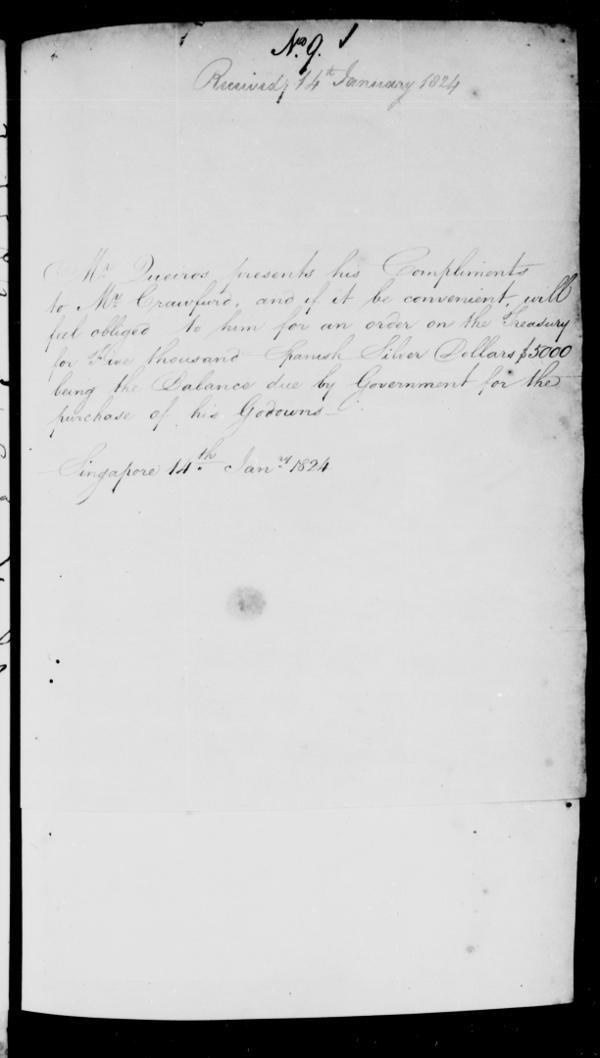 No. 9.
Received, 14th January 1824
Mr. Queiros presents his Compliments
to Mr. Crawfurd, and if it be convenient, will
feel obliged to him for an order on the Treasury
for Five thousand Spanish Silver Dollars $5000
being the Balance due by Government for the
purchase of his Godowns
Singapore 14th. Jany 1824